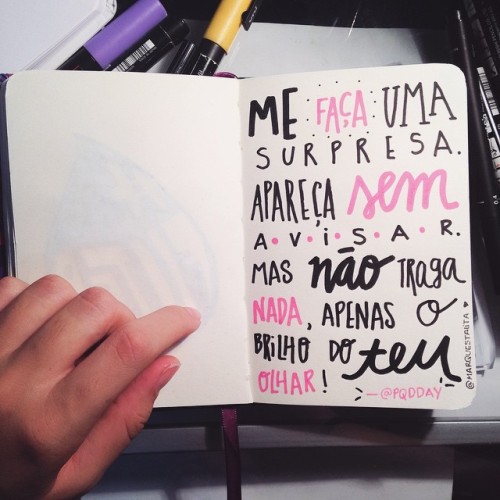 ME FAÇA UMA
SURPRESA.
APAREÇA sem
A•V•i•S•A•R.
MAS não TRAGA
NADA, APENAS O
BRILHO DO teu
OLHAR!
—@PQDDAY